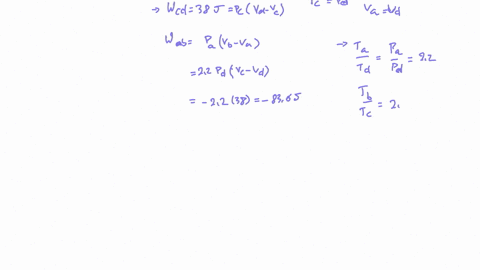 → W_cd = 38 J = P_c (V_d - V_c)
P_c = P_d
V_a = V_d
W_ab = P_a (V_b - V_a)
= 2.2 P_d (V_c - V_d)
= -2.2 (38) = -83.6 J
→ T_a / T_d = P_a / P_d = 2.2
T_b / T_c = 2.